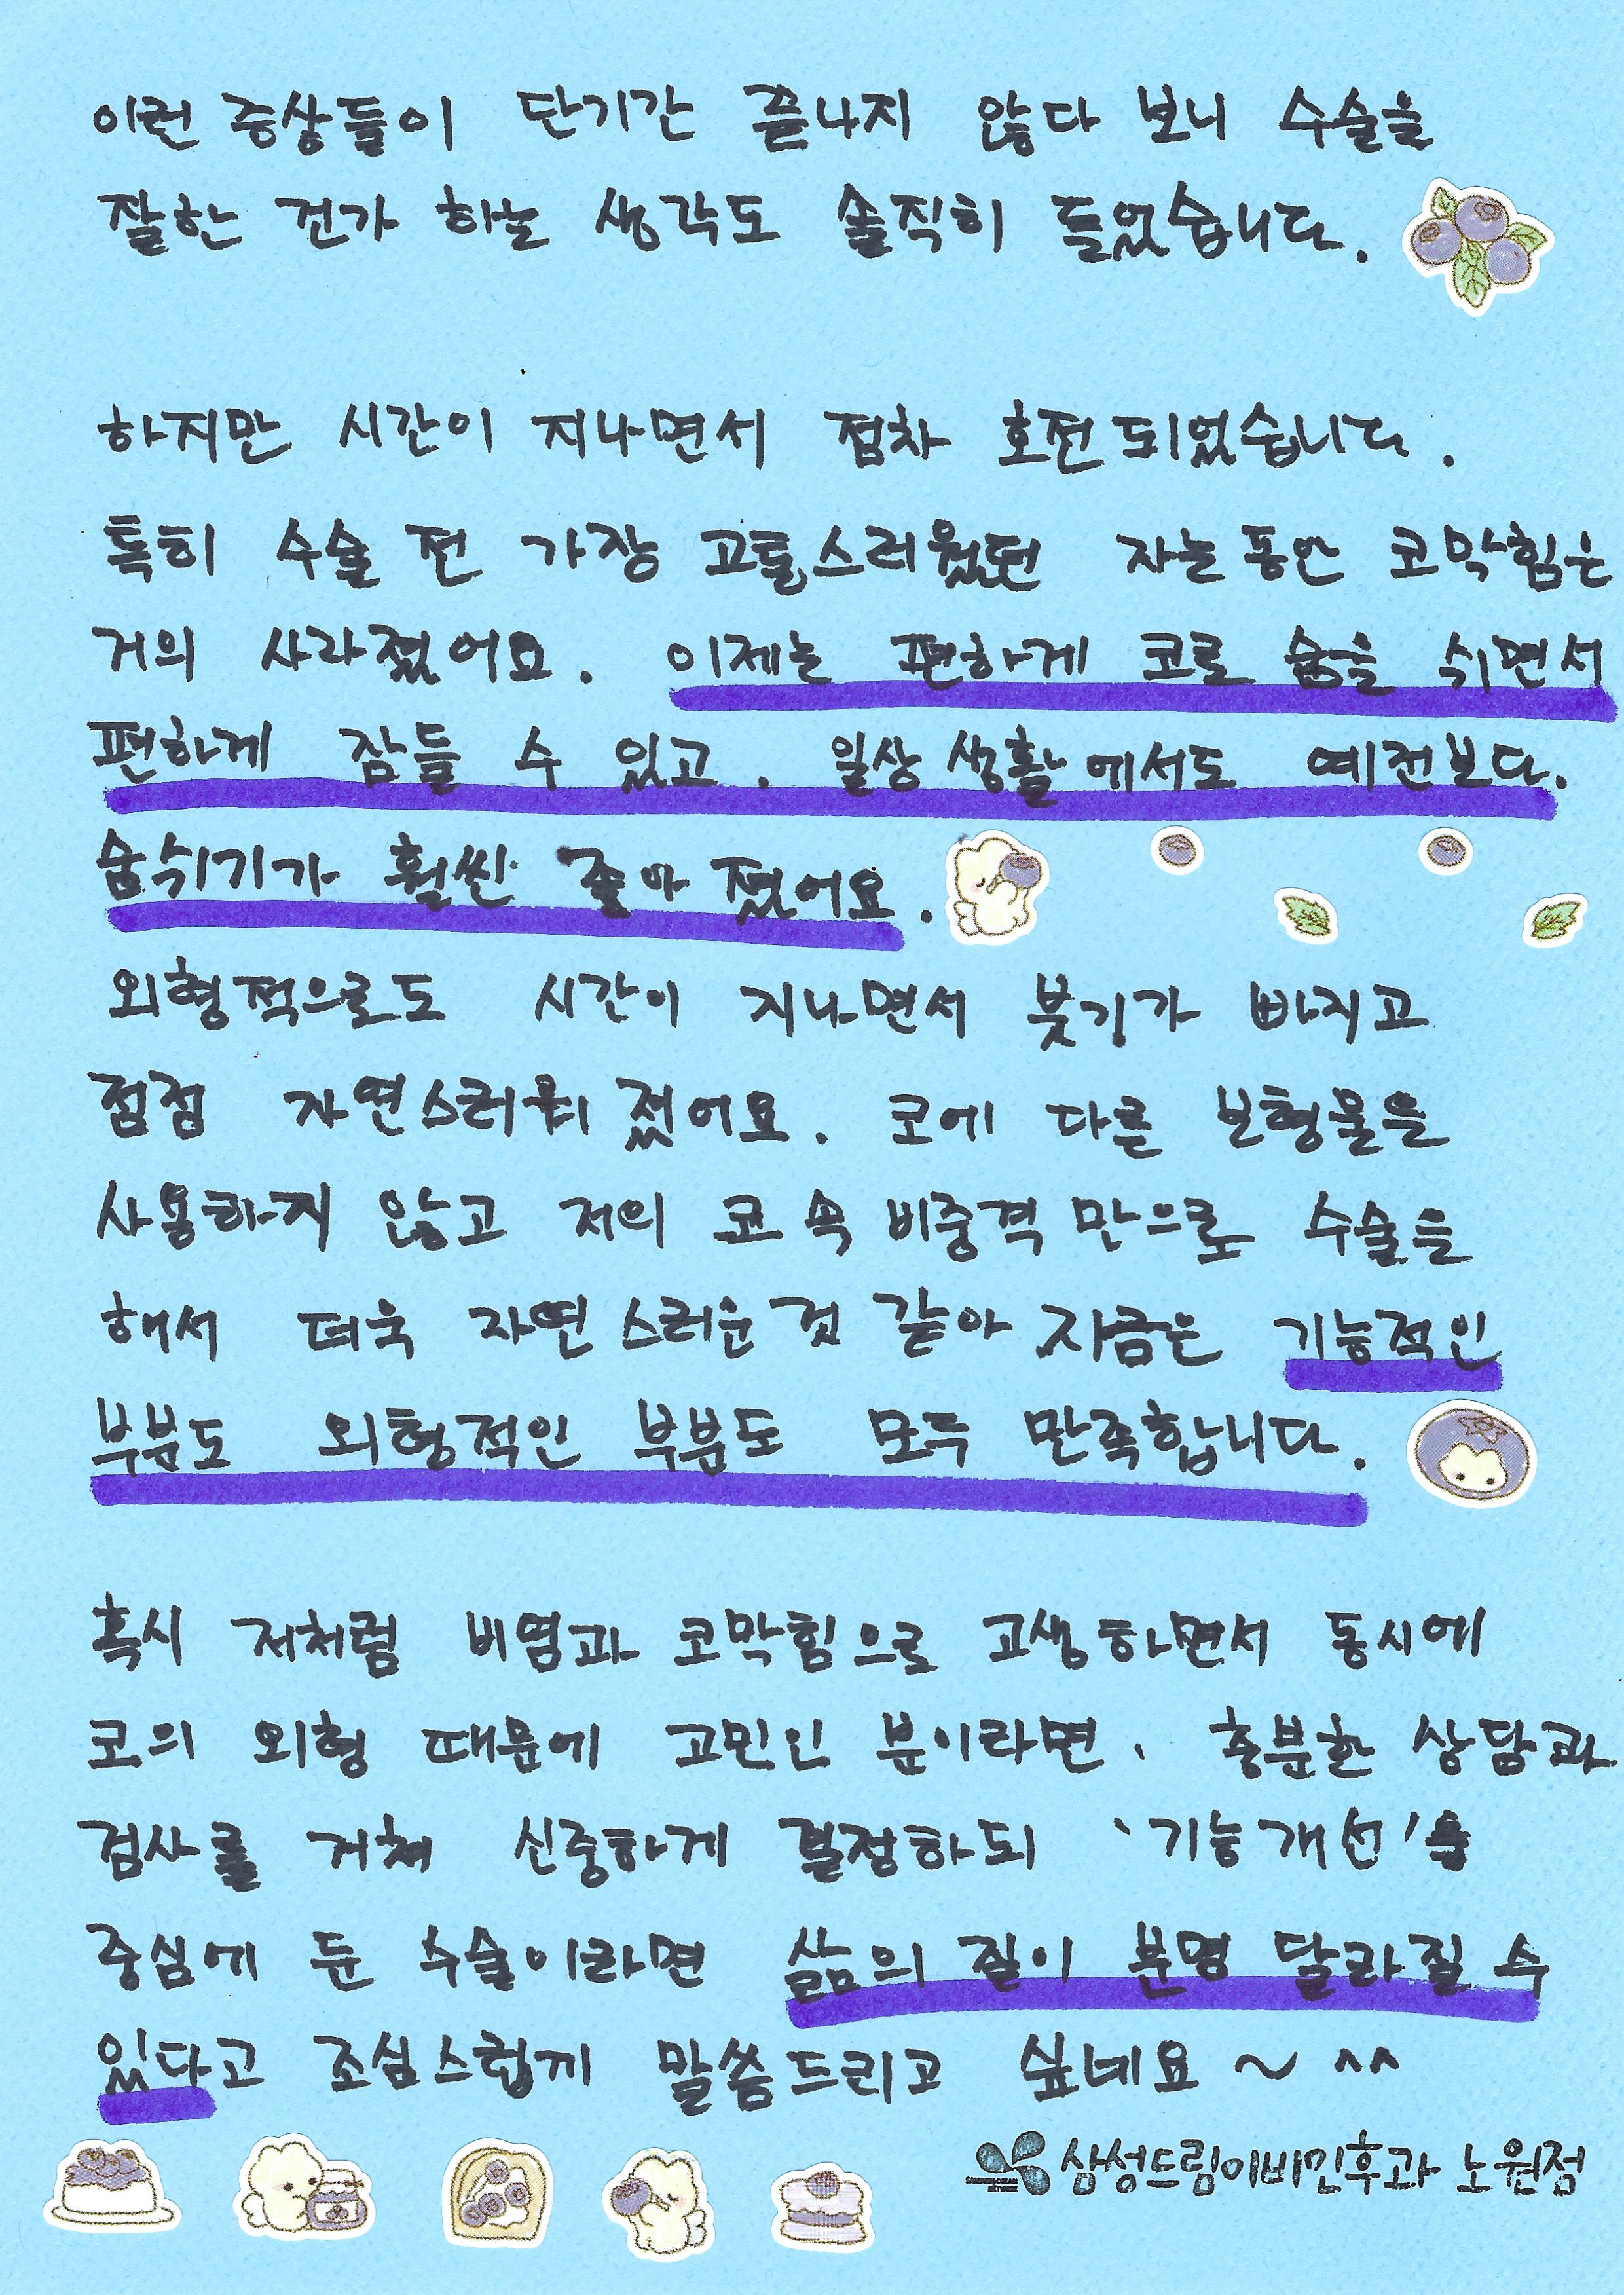 이런 증상들이 단기간 끝나지 않다 보니 수술을
잘한 건가 하는 생각도 솔직히 들었습니다.
하지만 시간이 지나면서 점차 호전되었습니다.
특히 수술 전 가장 고통스러웠던 자는 동안 코막힘은
거의 사라졌어요. 이제는 편하게 코로 숨을 쉬면서
편하게 잠들 수 있고. 일상생활에서도 예전보다.
숨쉬기가 훨씬 좋아졌어요.
외형적으로도 시간이 지나면서 붓기가 빠지고
점점 자연스러워졌어요. 코에 다른 보형물을
사용하지 않고 저의 코 속 비중격 만으로 수술을
해서 더욱 자연스러운 것 같아 지금은 기능적인
부분도 외형적인 부분도 모두 만족합니다.
혹시 저처럼 비염과 코막힘으로 고생하면서 동시에
코의 외형 때문에 고민인 분이라면, 충분한 상담과
검사를 거쳐 신중하게 결정하되 '기능개선'을
중심에 둔 수술이라면 삶의 질이 분명 달라질 수
있다고 조심스럽게 말씀드리고 싶네요~ ^^
삼성드림이비인후과 노원점